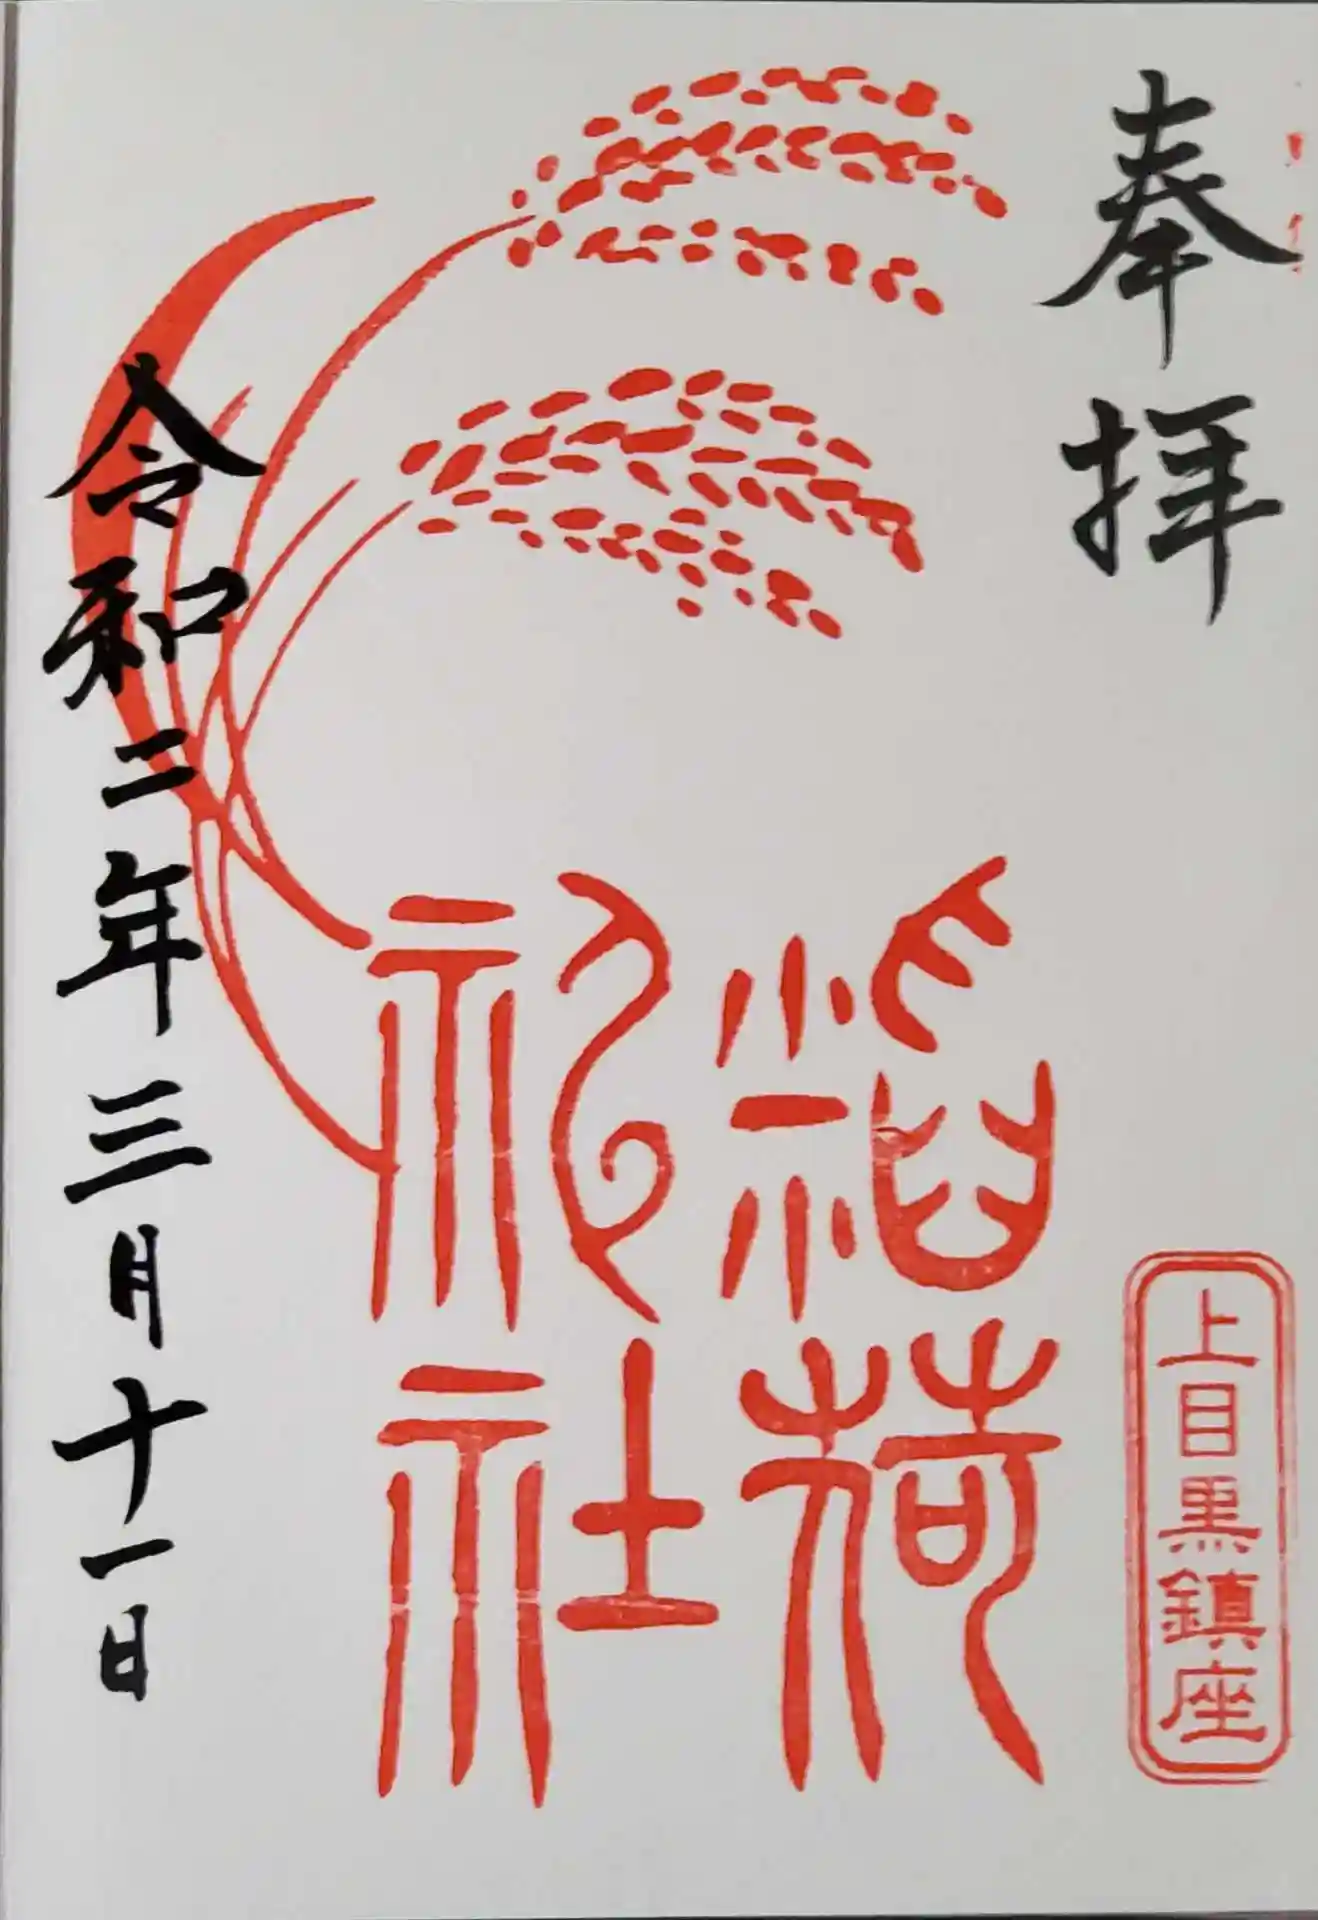 奉拝
上目黒鎮座
稲荷
神社
令和二年三月十一日